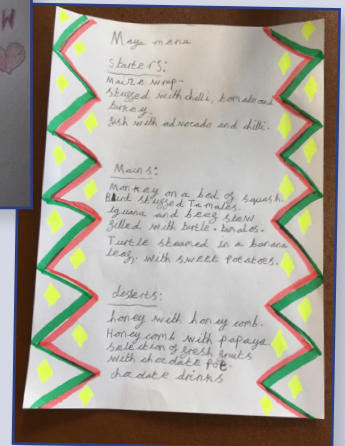 W
Maya menu
Starters:
Maize wrap-
stuffed with chilli, tomato and
turkey
fish with advocado and chilli.
Mains:
Monkey on a bed of squash
stuffed Tamales.
iguana and beef stew
filled with turtle.
Turtle steamed in a banana
leaf, with sweet potatoes.
deserts:
honey with honey comb.
Honey comb with papaya
selection of fresh fruits
with chocolate pot.
chocolate drinks